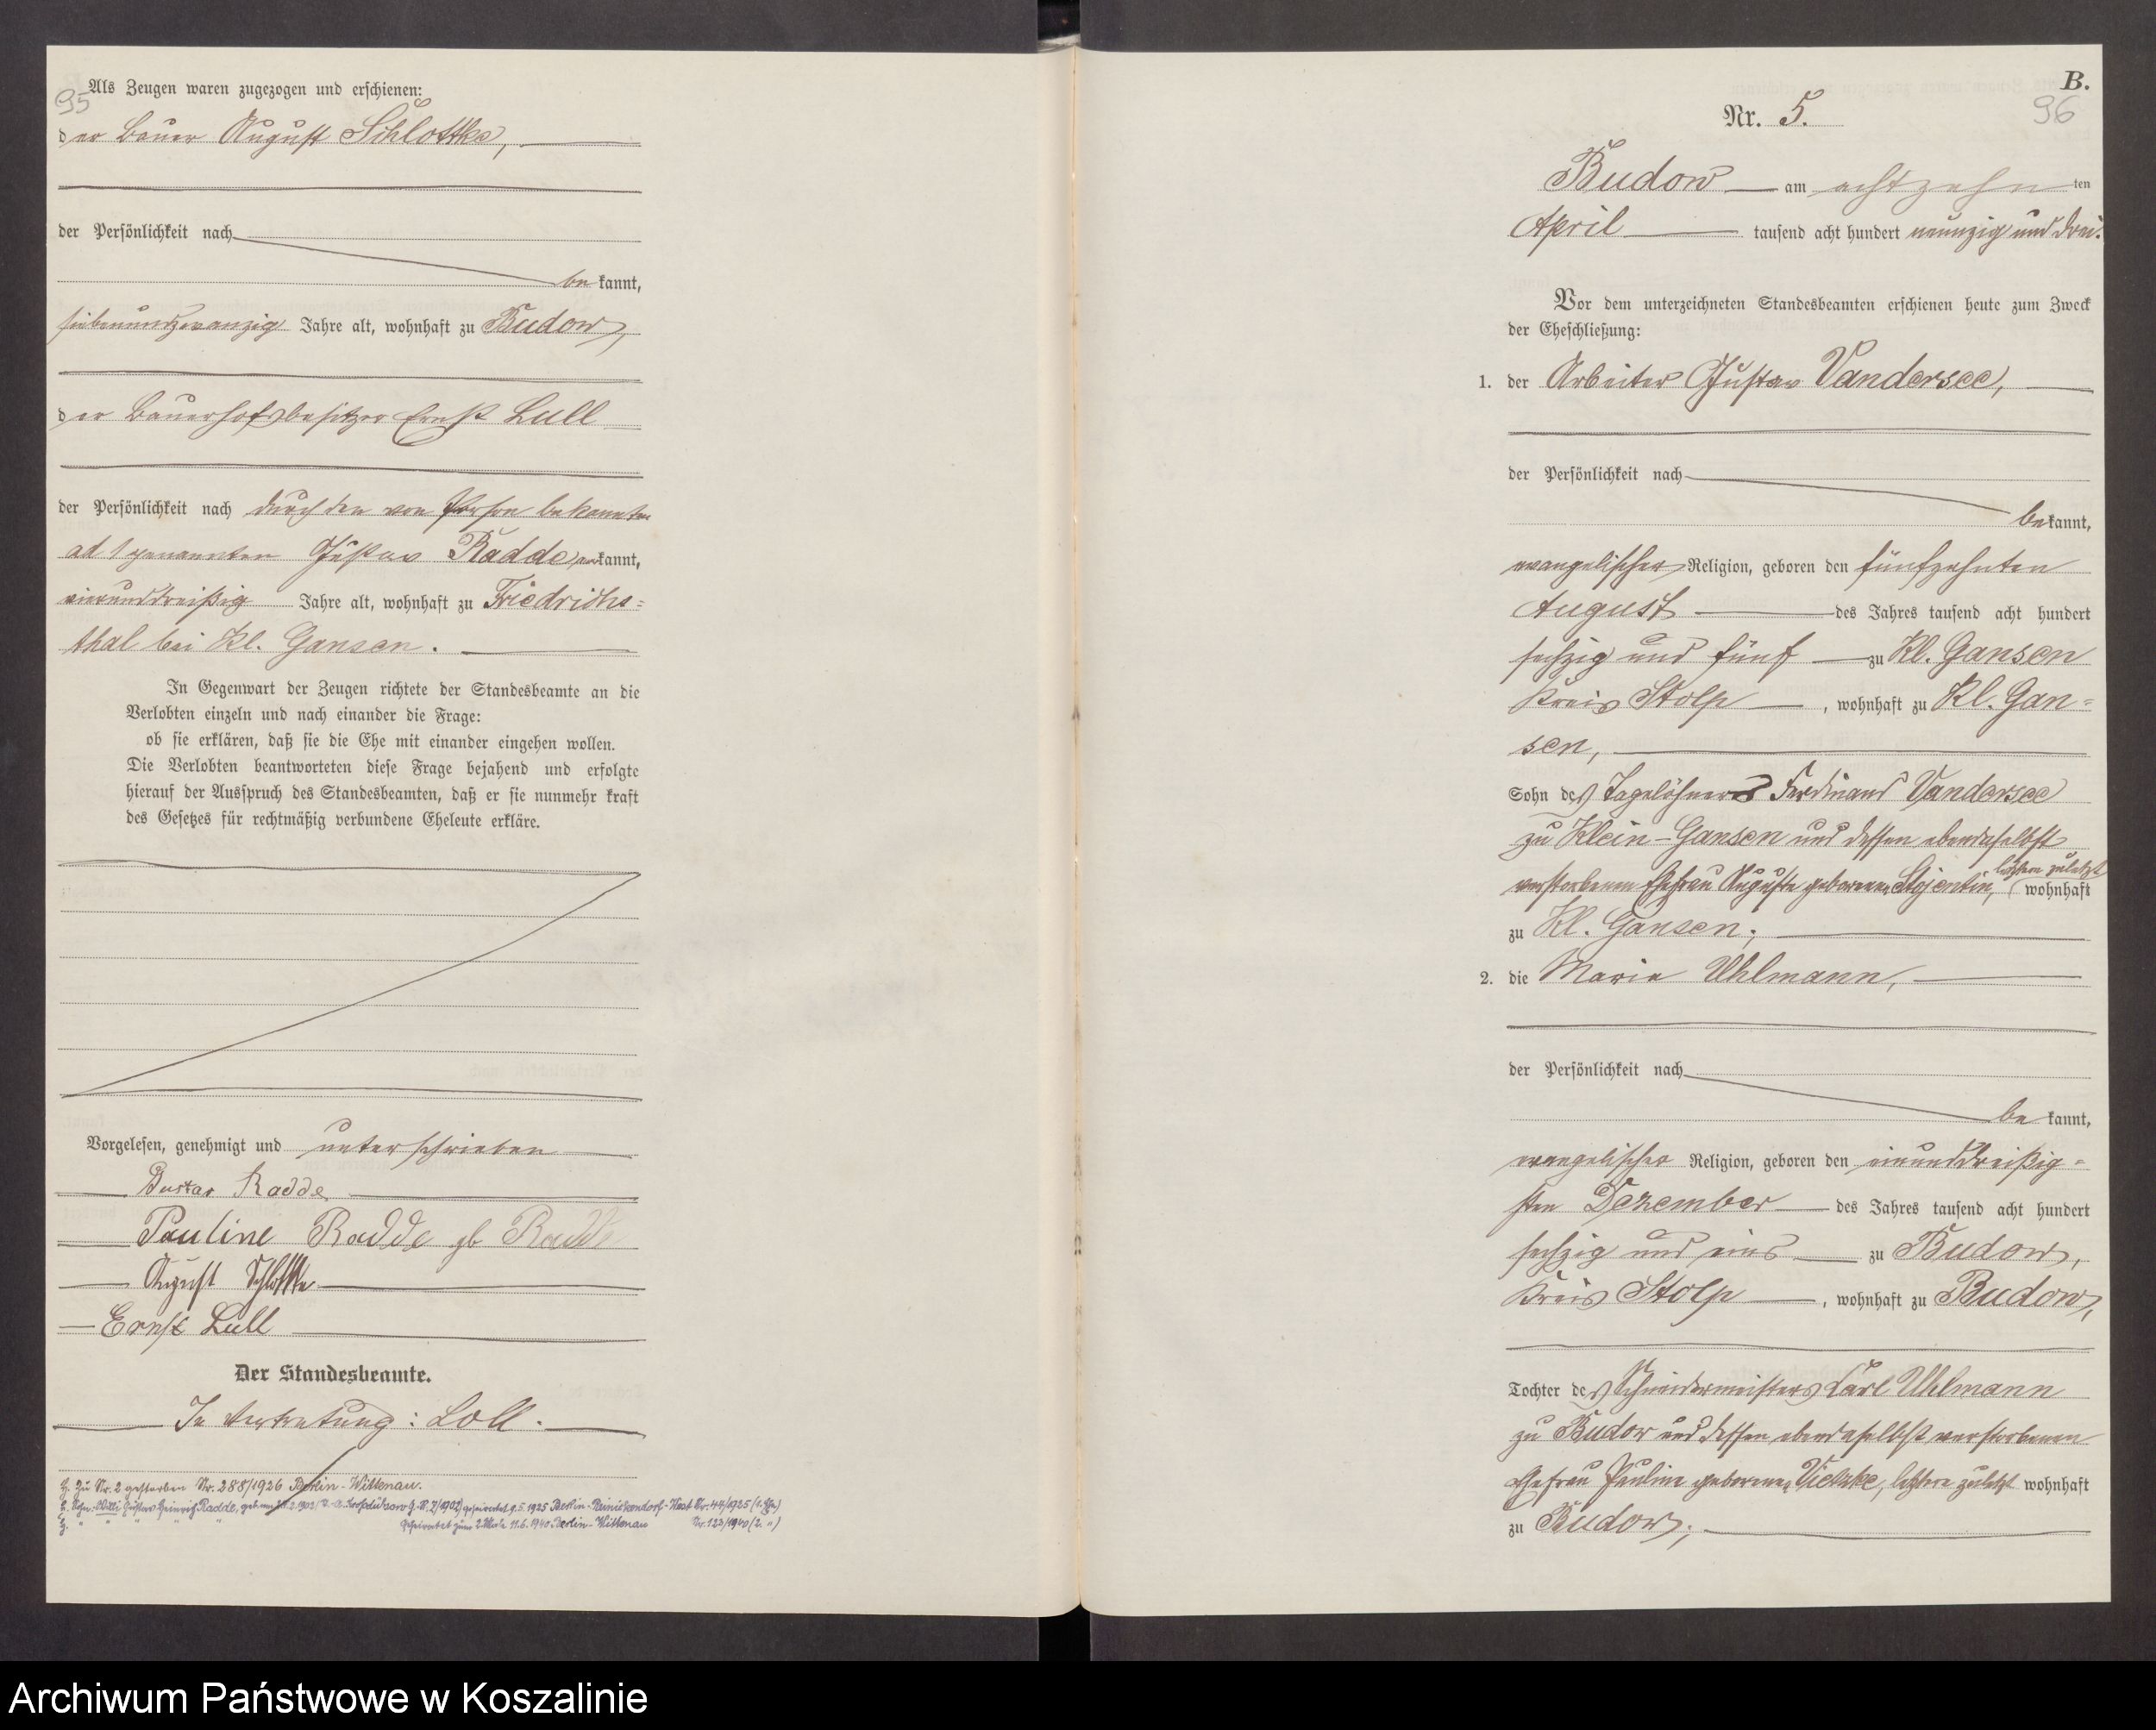 95
Als Zeugen waren zugezogen und erschienen:
der Bauer August Schlottke,
der Persönlichkeit nach
bekannt,
siebenundzwanzig Jahre alt, wohnhaft zu Budow,
der Bauerhofsbesitzer Ernst Lüll
der Persönlichkeit nach durch den von Person bekannten
ad 1 genannten Gustav Radde, erkannt,
vierunddreißig Jahre alt, wohnhaft zu Friedrichs=
thal bei Kl. Gansen.
In Gegenwart der Zeugen richtete der Standesbeamte an die
Verlobten einzeln und nach einander die Frage:
ob sie erklären, daß sie die Ehe mit einander eingehen wollen.
Die Verlobten beantworteten diese Frage bejahend und erfolgte
hierauf der Ausspruch des Standesbeamten, daß er sie nunmehr kraft
des Gesetzes für rechtmäßig verbundene Eheleute erkläre.
Vorgelesen, genehmigt und unterschrieben
Gustav Radde
Pauline Radde gb Radde
August Schlottke
Ernst Lüll
Der Standesbeamte.
In Vertretung: Loll.
H. Zu Nr. 2 gestorben Nr. 288/1926 Berlin-Wittenau.
Willi Gustav Heinrich Radde, geheiratet 9.5.1925 Berlin-Reinickendorf-West Nr. 44/1925 (1. Ehe)
Geheiratet zum 2. Male 11.6.1940 Berlin-Wittenau Nr. 123/1940 (2. ")
B.
96
Nr. 5.
Budow am achtzehnten
April tausend acht hundert neunzig und drei.
Vor dem unterzeichneten Standesbeamten erschienen heute zum Zweck
der Eheschließung:
1. der Arbeiter Gustav Vandersee,
der Persönlichkeit nach
bekannt,
evangelischer Religion, geboren den fünfzehnten
August des Jahres tausend acht hundert
sechzig und fünf zu Kl. Gansen
Kreis Stolp, wohnhaft zu Kl. Gan=
sen,
Sohn des Tagelöhners Ferdinand Vandersee
zu Klein-Gansen und dessen ebendaselbst
verstorbenen Ehefrau Auguste geborenen Stojentin, letztere zuletzt wohnhaft
zu Kl. Gansen;
2. die Marie Uhlmann,
der Persönlichkeit nach
bekannt,
evangelischer Religion, geboren den einunddreißig=
sten Dezember des Jahres tausend acht hundert
sechzig und eins zu Budow,
Kreis Stolp, wohnhaft zu Budow,
Tochter des Schneidermeisters Carl Uhlmann
zu Budow und dessen ebendaselbst verstorbenen
Ehefrau Pauline geborenen Vietzke, letztere zuletzt wohnhaft
zu Budow;
Archiwum Państwowe w Koszalinie